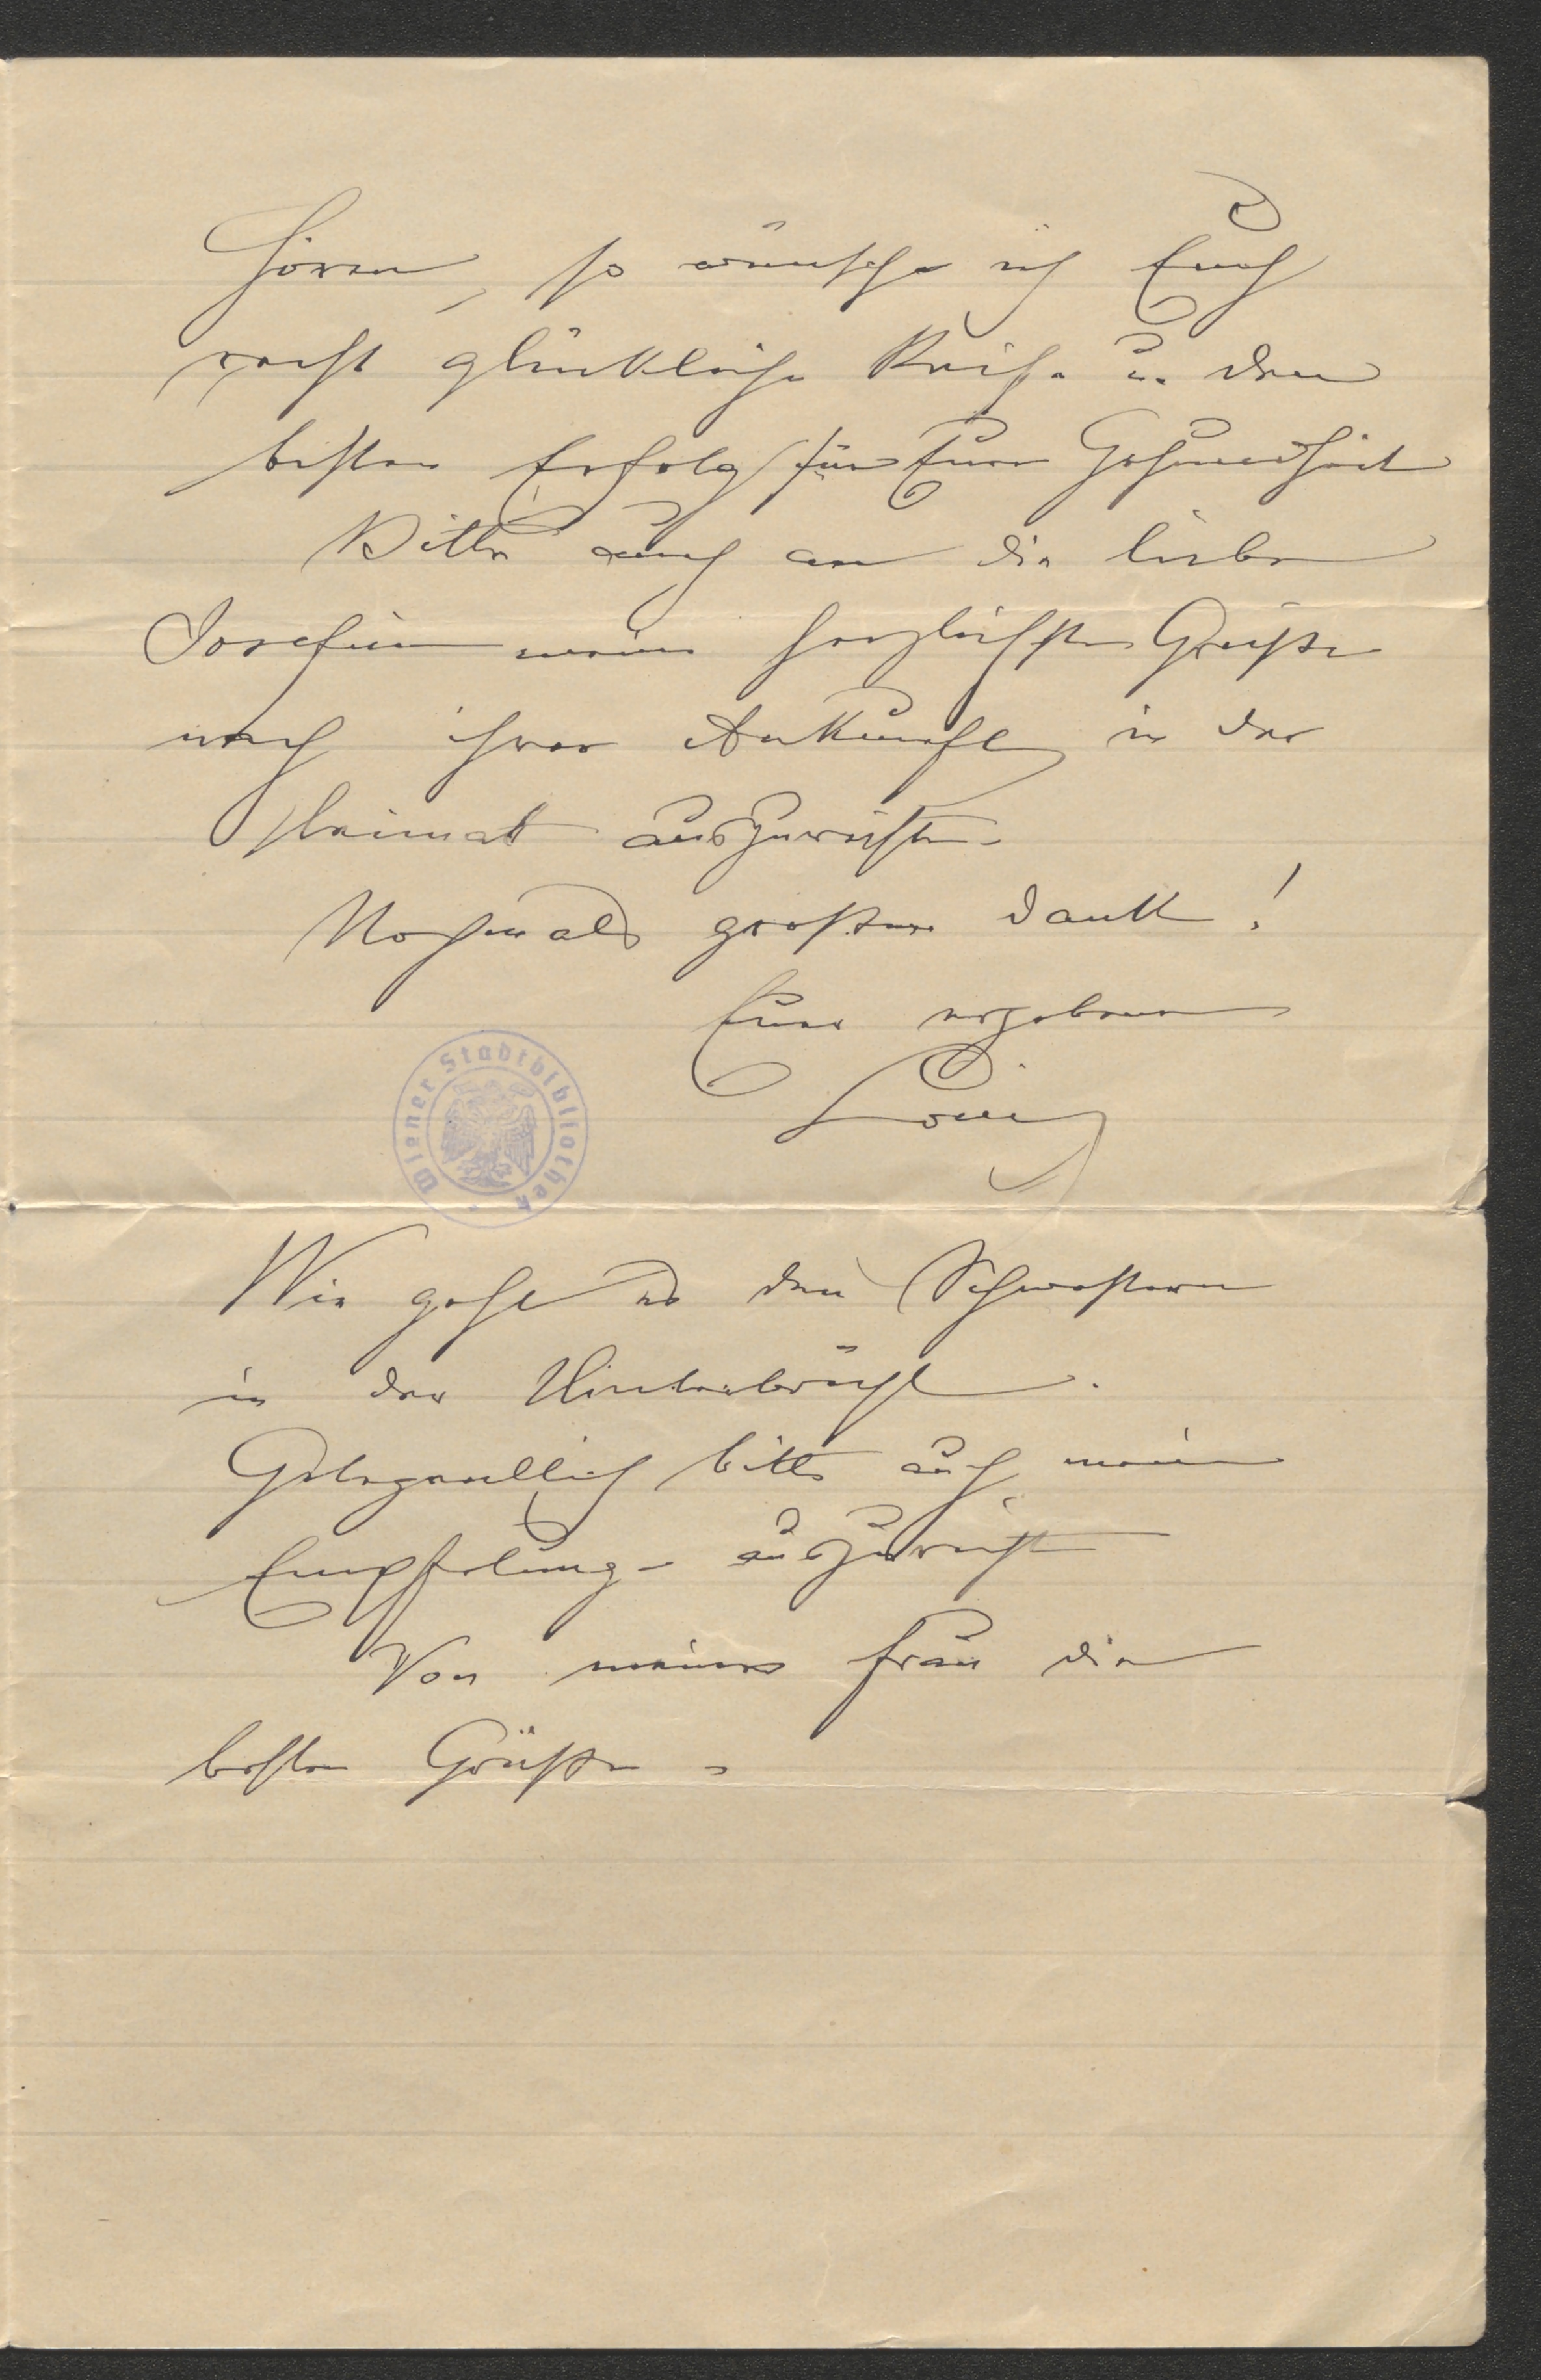 hören, so wünsche ich Euch
recht glückliche Reise u. den
besten Erfolg für Eure Gesundheit
Bitte auch an die liebe
Josefine meine herzlichsten Grüße
nach ihrer Ankunft in der
Heimat auszurichten.
Nochmals großen Dank!
Euer ergebener
Wiener Stadtbibliothek
Wie geht es den Schwestern
in der Hinterbrühl.
Gelegentlich bitte auch meine
Empfelung auszurichten
Von meiner Frau die
besten Grüße.